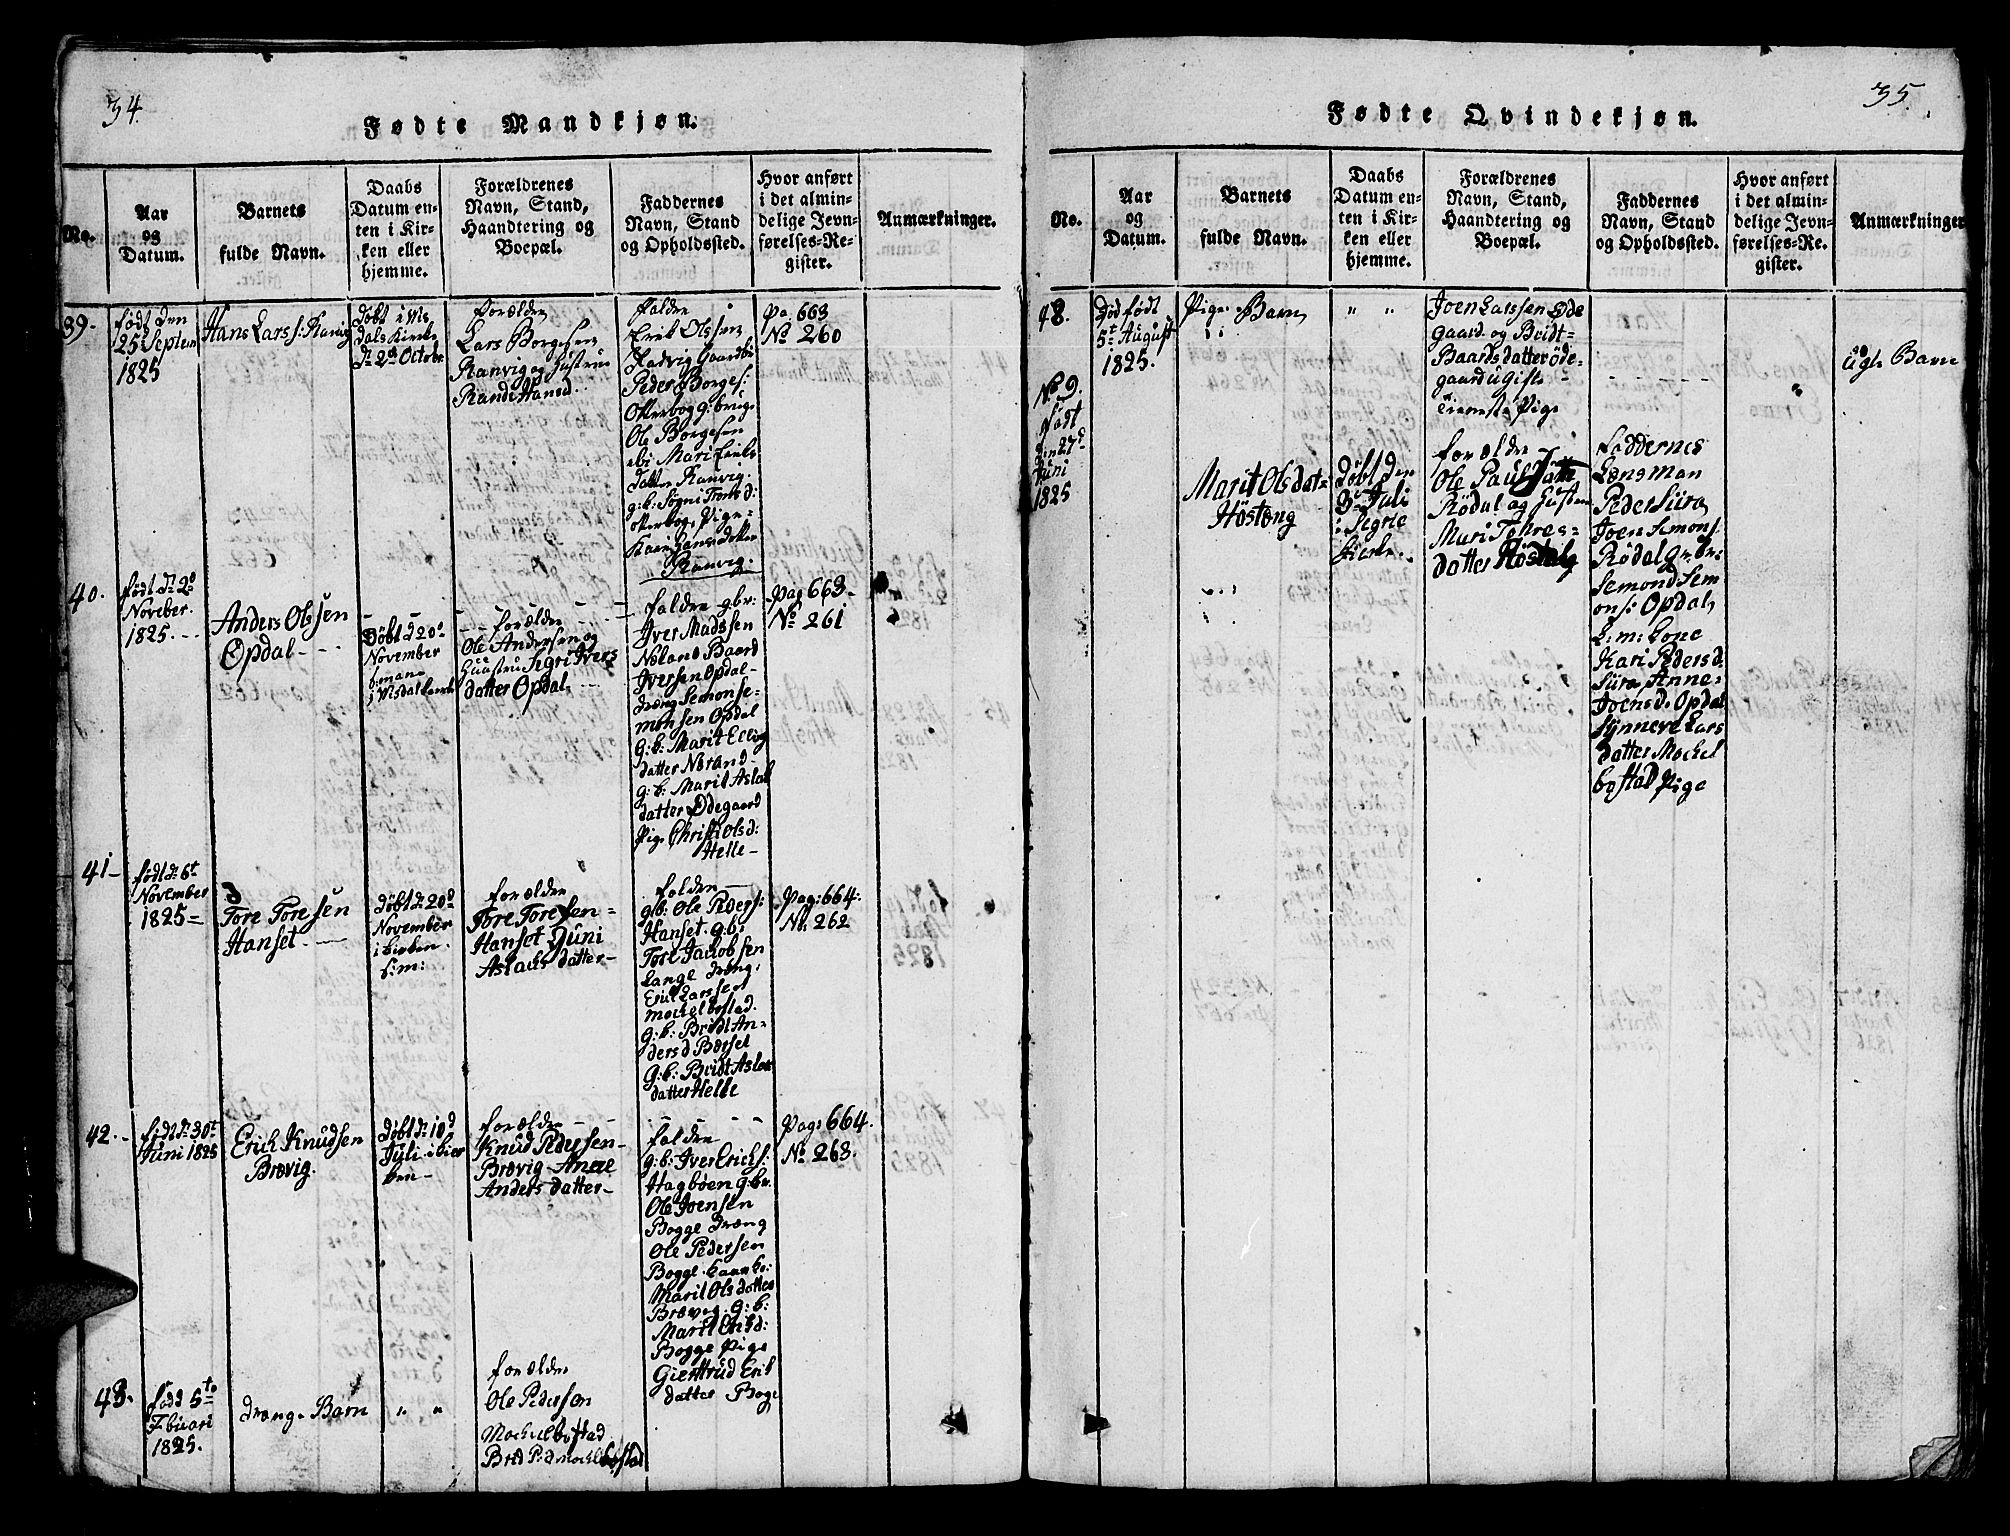 34.
Fødte Mandkjøn.
No.
Aar
og
Datum.
Barnets
fulde Navn.
Daabs
Datum en-
ten i Kir-
ken eller
hjemme.
Forældrenes
Navn, Stand,
Haandtering og
Boepæl.
Faddernes
Navn, Stand
og Opholdssted.
Hvor anført
i det almin-
delige Jevn-
førelses-Re-
gister.
Anmærkninger.
39.
født den
25de Septem
1825
Hans Larss: Ranvig
Døbt i Vis
dals Kirke
d: 2d Octobr
forældre
Lars Borgesen
Ranvig og Hustrue
Randi Hansd.
faldre
Erik Olssen
Peder Borges:
Ole Borgesen
Mari Eriks
datter Ranvig
g:b: Søgni Trons d:
Pige
Ranvig.
Pa. 663
No 260
40.
født d: 2d
Noveber.
1825.
Anders Olssen
Opdal
Døbt d 20d
November
i Visdal Kirke
forældre
Ole Andersen og
Huustru Segri Ivers
datter Opdal
faldre g:br:
Iver Madssen
Nøland Baard
Iversen Opdal
dræng Semon Se-
monsen Opdal
g:k: Marit Elling
datter Nørand
g:b: Marit Aslak
datter Ødegaard
Pige Christi Olsd:
Helle
Pag 663.
No 261
41
født d: 6t
November
1825
Tore Toresen
Hanset.
døbt d: 20d
November
i kirken
forældre
Tore Toresen
Hanset Guni
Aslachs datter
faldre
gb: Ole Peders:
Hanset. g:b:
Tore Jacobsen
Lange dreng:
Eric Larssen
Mochelbostad.
g:b: Bridt An-
ders d Bærset
g:b: Bridt Aslak
datter Helle
Pag: 664:
No: 262
42.
født d: 30t
Juni 1825
Erich Knudsen
Brøvig.
Døbt d: 10d
Juli i kier
ken
forældre
Knud Pedersen
Brøvig Anne
Anders datter
faldre
g:b: Iver Erichs:
Hagbøen g:br.
Ole Joensen
Bogge dræng
Ole Pedersen
Bogge.
Marit Olsdatter
Brøveg. g:b:
Marit Eriksd:
Bogge Pige
Giertrud Erik
datter Boge
Pag: 664.
No 263.
43.
født 5te
Febuari
1825.
drænge Barn
" "
forældre
Ole Pedersen
Mochelbostad
Brid P:d Mochelbostad
35.
Fødte Qvindekjøn.
No.
Aar
og
Datum.
Barnets
fulde Navn.
Daabs
Datum en-
ten i Kir-
ken eller
hjemme.
Forældrenes
Navn, Stand,
Haandtering og
Boepæl.
Faddernes
Navn, Stand
og Opholdssted.
Hvor anført
i det almin-
delige Jevn-
førelses-Re-
gister.
Anmærkninger
48.
Død født
5t August
1825.
Pige Barn
" "
Joen Larssen Øde
gaard og Bridt
Baards datter Øde-
gaard uGift
Tieneste Pige
uGte Barn
No 9.
født
den 27d
Juni
1825
Marit Olsdat=
Høstæng
døbt den
3d Juli
i Segrie
Kierke.
forældre
Ole Paul
Rødal og Hustru
Mari Tohres=
datter
Faddernes
Lensman
Peder Sūra
Joen Semons:
Rødal g: br:
Semond Sem
ons: Opdal,
L:m: Kone
Kari Peders d:
Sūra Anne
Joens d. Opdal
Synneve Lars
datter Mochel
bostad Pige